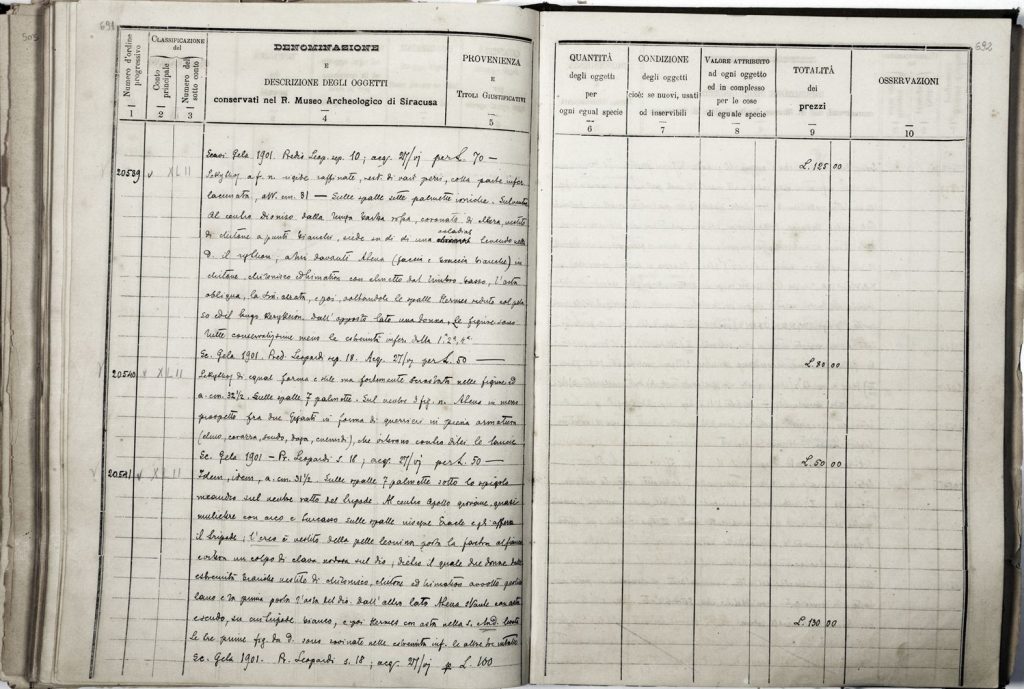 691
Numero d'ordine progressivo
CLASSIFICAZIONE
del
Conto principale
Numero del sotto conto
DENOMINAZIONE
E
DESCRIZIONE DEGLI OGGETTI
conservati nel R. Museo Archeologico di Siracusa
PROVENIENZA
E
TITOLI GIUSTIFICATIVI
1 2 3 4 5
Scavi Gela 1901. Predio Leop. sep. 10; acq. 27/vj per L. 70 —
20539 XLII Lekythos a f. n. rest. di vari pezzi, colla parte infer.
lacunata, alt. cm. 31 — Sulle spalle sette palmette
Al centro Dioniso dalla lunga barba rossa, coronato di edera, vestito
di chitone a punti bianchi, siede su di una
D. il rython; a lui davanti Athena (faccia e braccia bianche) in
chitone, ed himation con elmetto dal cimiero basso, l'asta
obliqua, la e poi, voltandole le spalle Hermes
so ed il lungo Kerykeion. Dall'opposto lato una donna. Le figure sono
tutte meno le estremità infer. della 1ª 2ª, 4ª.
Sc. Gela 1901. Pred. Leopardi sep. 18. Acq. 27/vj per L. 50 —
20540 XLII Lekythos di egual forma e stile ma fortemente nelle figure ed
a. cm. 32½. Sulle spalle 7 palmette. Sul ventre 3 fig. n. Athena in mezzo
prospetto fra due Giganti in forma di guerrieri in piena armatura
(elmo, corazza, scudo, daga, cnemidi), che contro di lei le lancie
Sc. Gela 1901 — Pr. Leopardi s. 18; acq. 27/vj per L. 50 —
20541 XLII Idem, idem, a. cm. 31½. Sulle spalle 7 palmette sotto lo spigolo
meandro sul ventre ratto del tripode. Al centro Apollo giovane, quasi
muliebre con arco e turcasso sulle spalle Eracle e gli afferra
il tripode; l'eroe è vestito della pelle leonina
un colpo di clava nodosa sul dio; dietro il quale due donne dalle
estremità bianche vestite di chitonisco, chitone ed himation
e la prima porta l'asta del dio. Dall'altro lato Athena con asta
e scudo, su un tripode bianco, e poi Hermes con asta nella s.
Le tre prime fig. da D. sono rovinate nelle estremità inf. le altre tre intatte
Sc. Gela 1901. Pr. Leopardi s. 18; acq. 27/vj L. 100
692
QUANTITÀ
degli oggetti
per
ogni egual specie
CONDIZIONE
degli oggetti
cioè: se nuovi, usati
od inservibili
VALORE ATTRIBUITO
ad ogni oggetto
ed in complesso
per le cose
di eguale specie
TOTALITÀ
dei
prezzi
OSSERVAZIONI
6 7 8 9 10
L. 125 00
L. 80 00
L. 50 00
L. 130 00